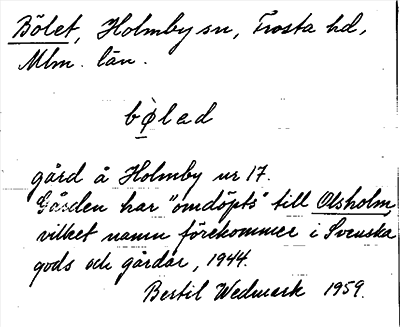 Bölet, Holmby sn, Frosta hd,
Mlm. län.
bø̀lad
gård å Holmby nr 17.
Gården har "omdöpts" till Olsholm,
vilket namn förekommer i Svenska
gods och gårdar, 1944.
Bertil Wedmark 1959.